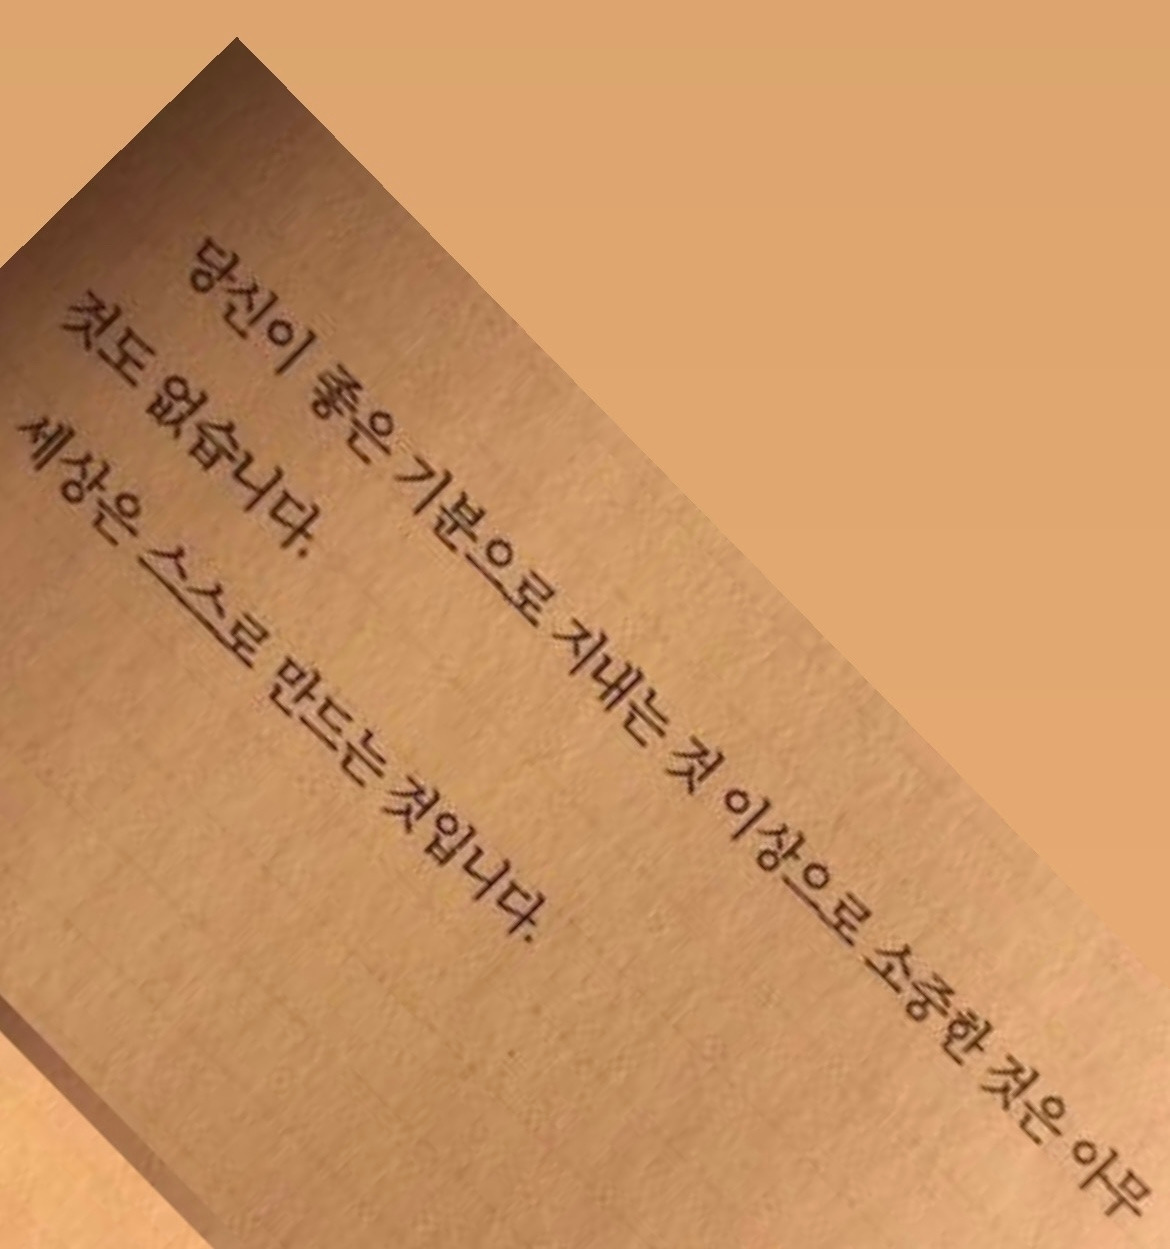 당신이 좋은 기분으로 지내는 것 이상으로 소중한 것은 아무
것도 없습니다.
세상은 스스로 만드는 것입니다.